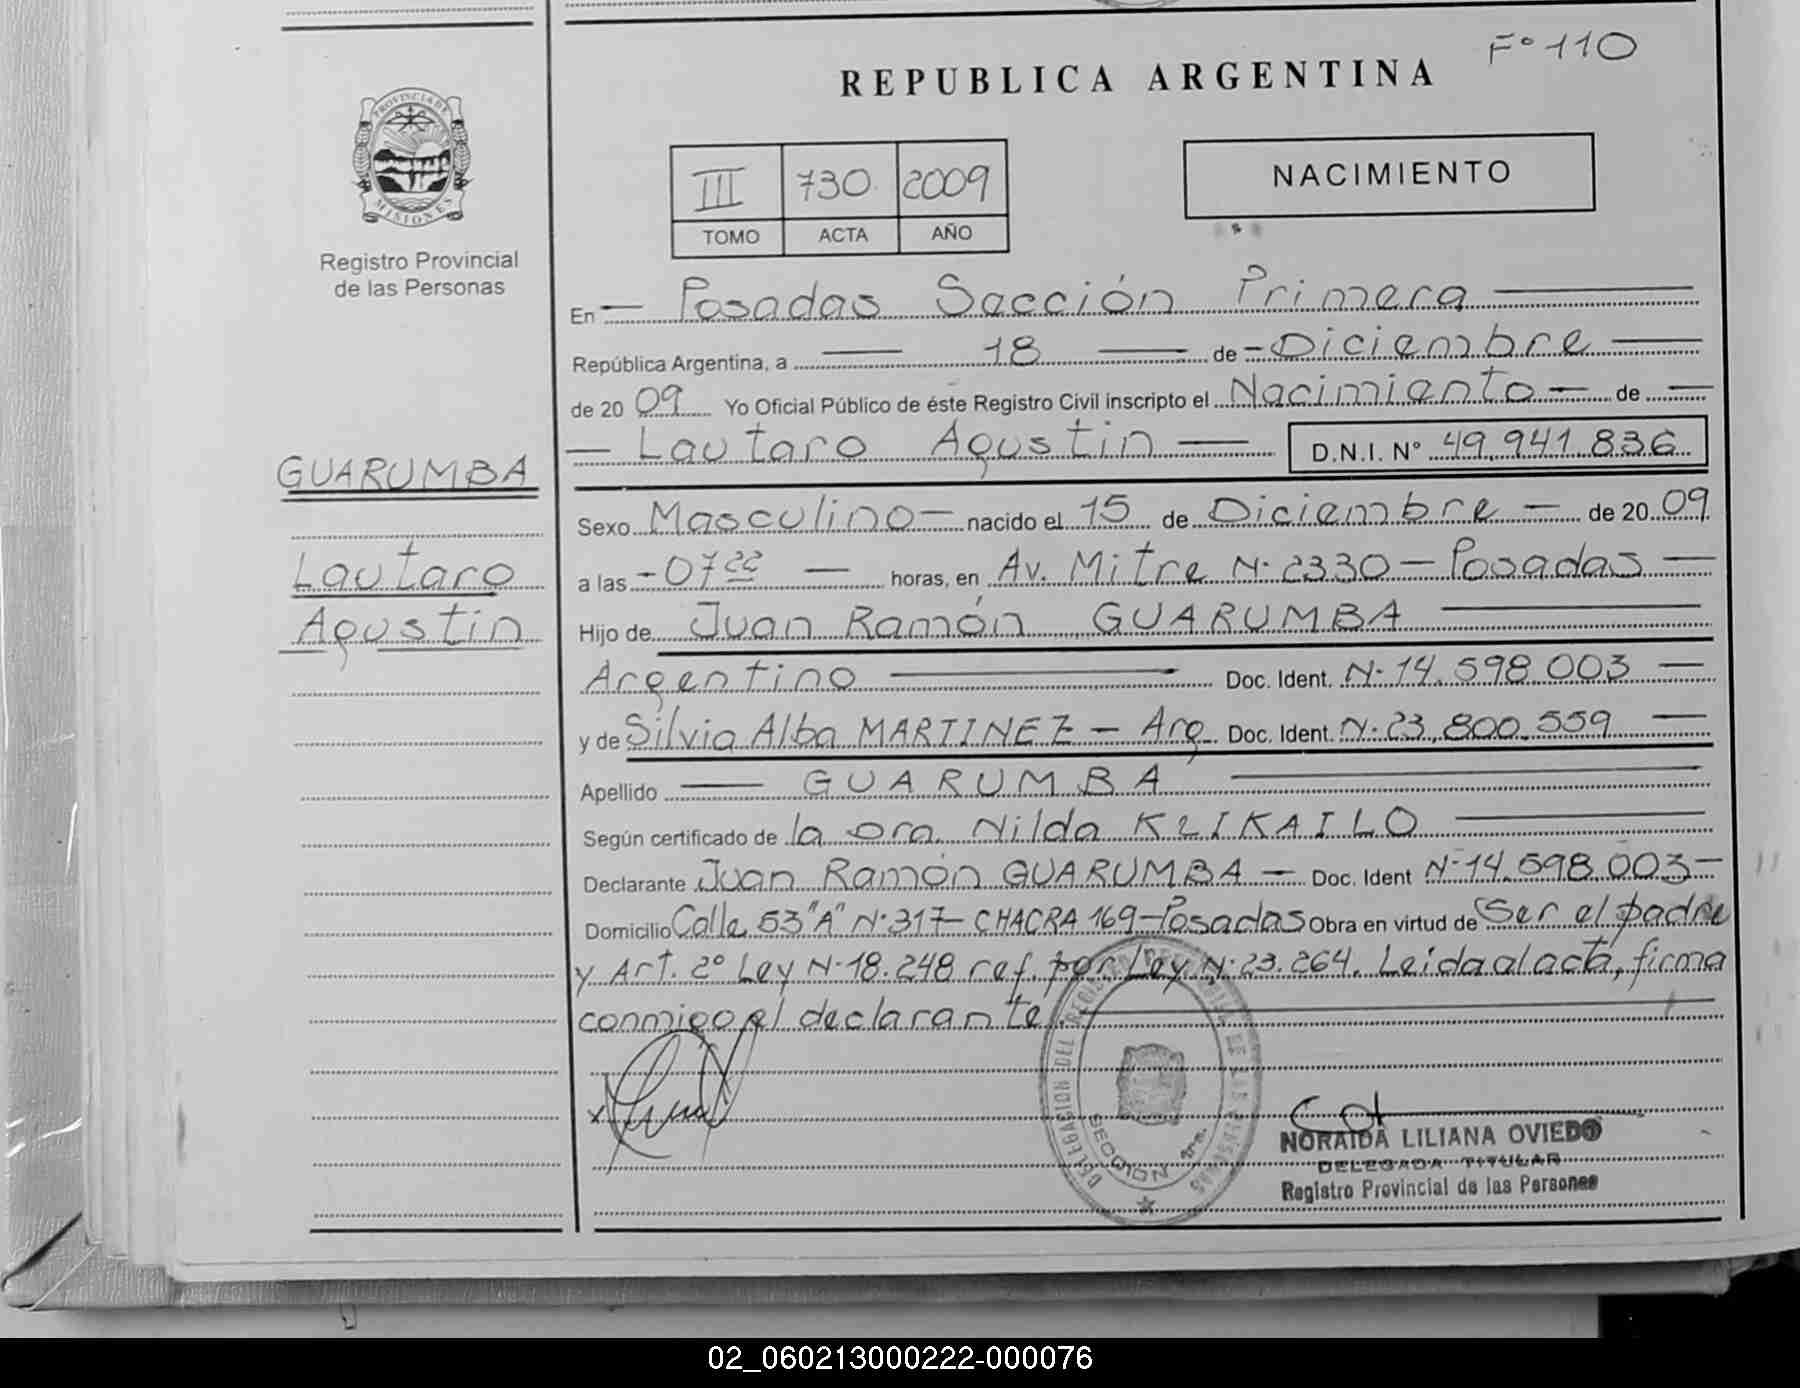 F° 110
REPUBLICA ARGENTINA
PROVINCIA DE MISIONES
Registro Provincial
de las Personas
III 730 2009
TOMO ACTA AÑO
NACIMIENTO
En — Posadas Sección Primera —
República Argentina, a — 18 — de — Diciembre —
de 20 09 Yo Oficial Público de éste Registro Civil inscripto el Nacimiento — de —
— Lautaro Agustin — D.N.I. N° 49.941.836
GUARUMBA
Lautaro
Agustin
Sexo Masculino — nacido el 15 de Diciembre — de 20 09
a las - 07 22 — horas, en Av. Mitre N· 2330 — Posadas —
Hijo de Juan Ramón GUARUMBA —
Argentino — Doc. Ident. N· 14.598.003 —
y de Silvia Alba MARTINEZ — Arg. Doc. Ident. N· 23.800.559 —
Apellido — GUARUMBA —
Según certificado de la Dra. Nilda KLIKAILO —
Declarante Juan Ramón GUARUMBA — Doc. Ident N· 14.598.003 —
Domicilio Calle 53 "A" N· 317 — CHACRA 169 — Posadas Obra en virtud de Ser el padre
y Art. 2° Ley N· 18.248 ref. por Ley N· 23.264. Leida al acta, firma
conmigo el declarante. —
DELEGACION DEL REGISTRO PROVINCIAL DE LAS PERSONAS
SECCION 1ra.
NORAIDA LILIANA OVIEDO
DELEGADA TITULAR
Registro Provincial de las Personas
02_060213000222-000076